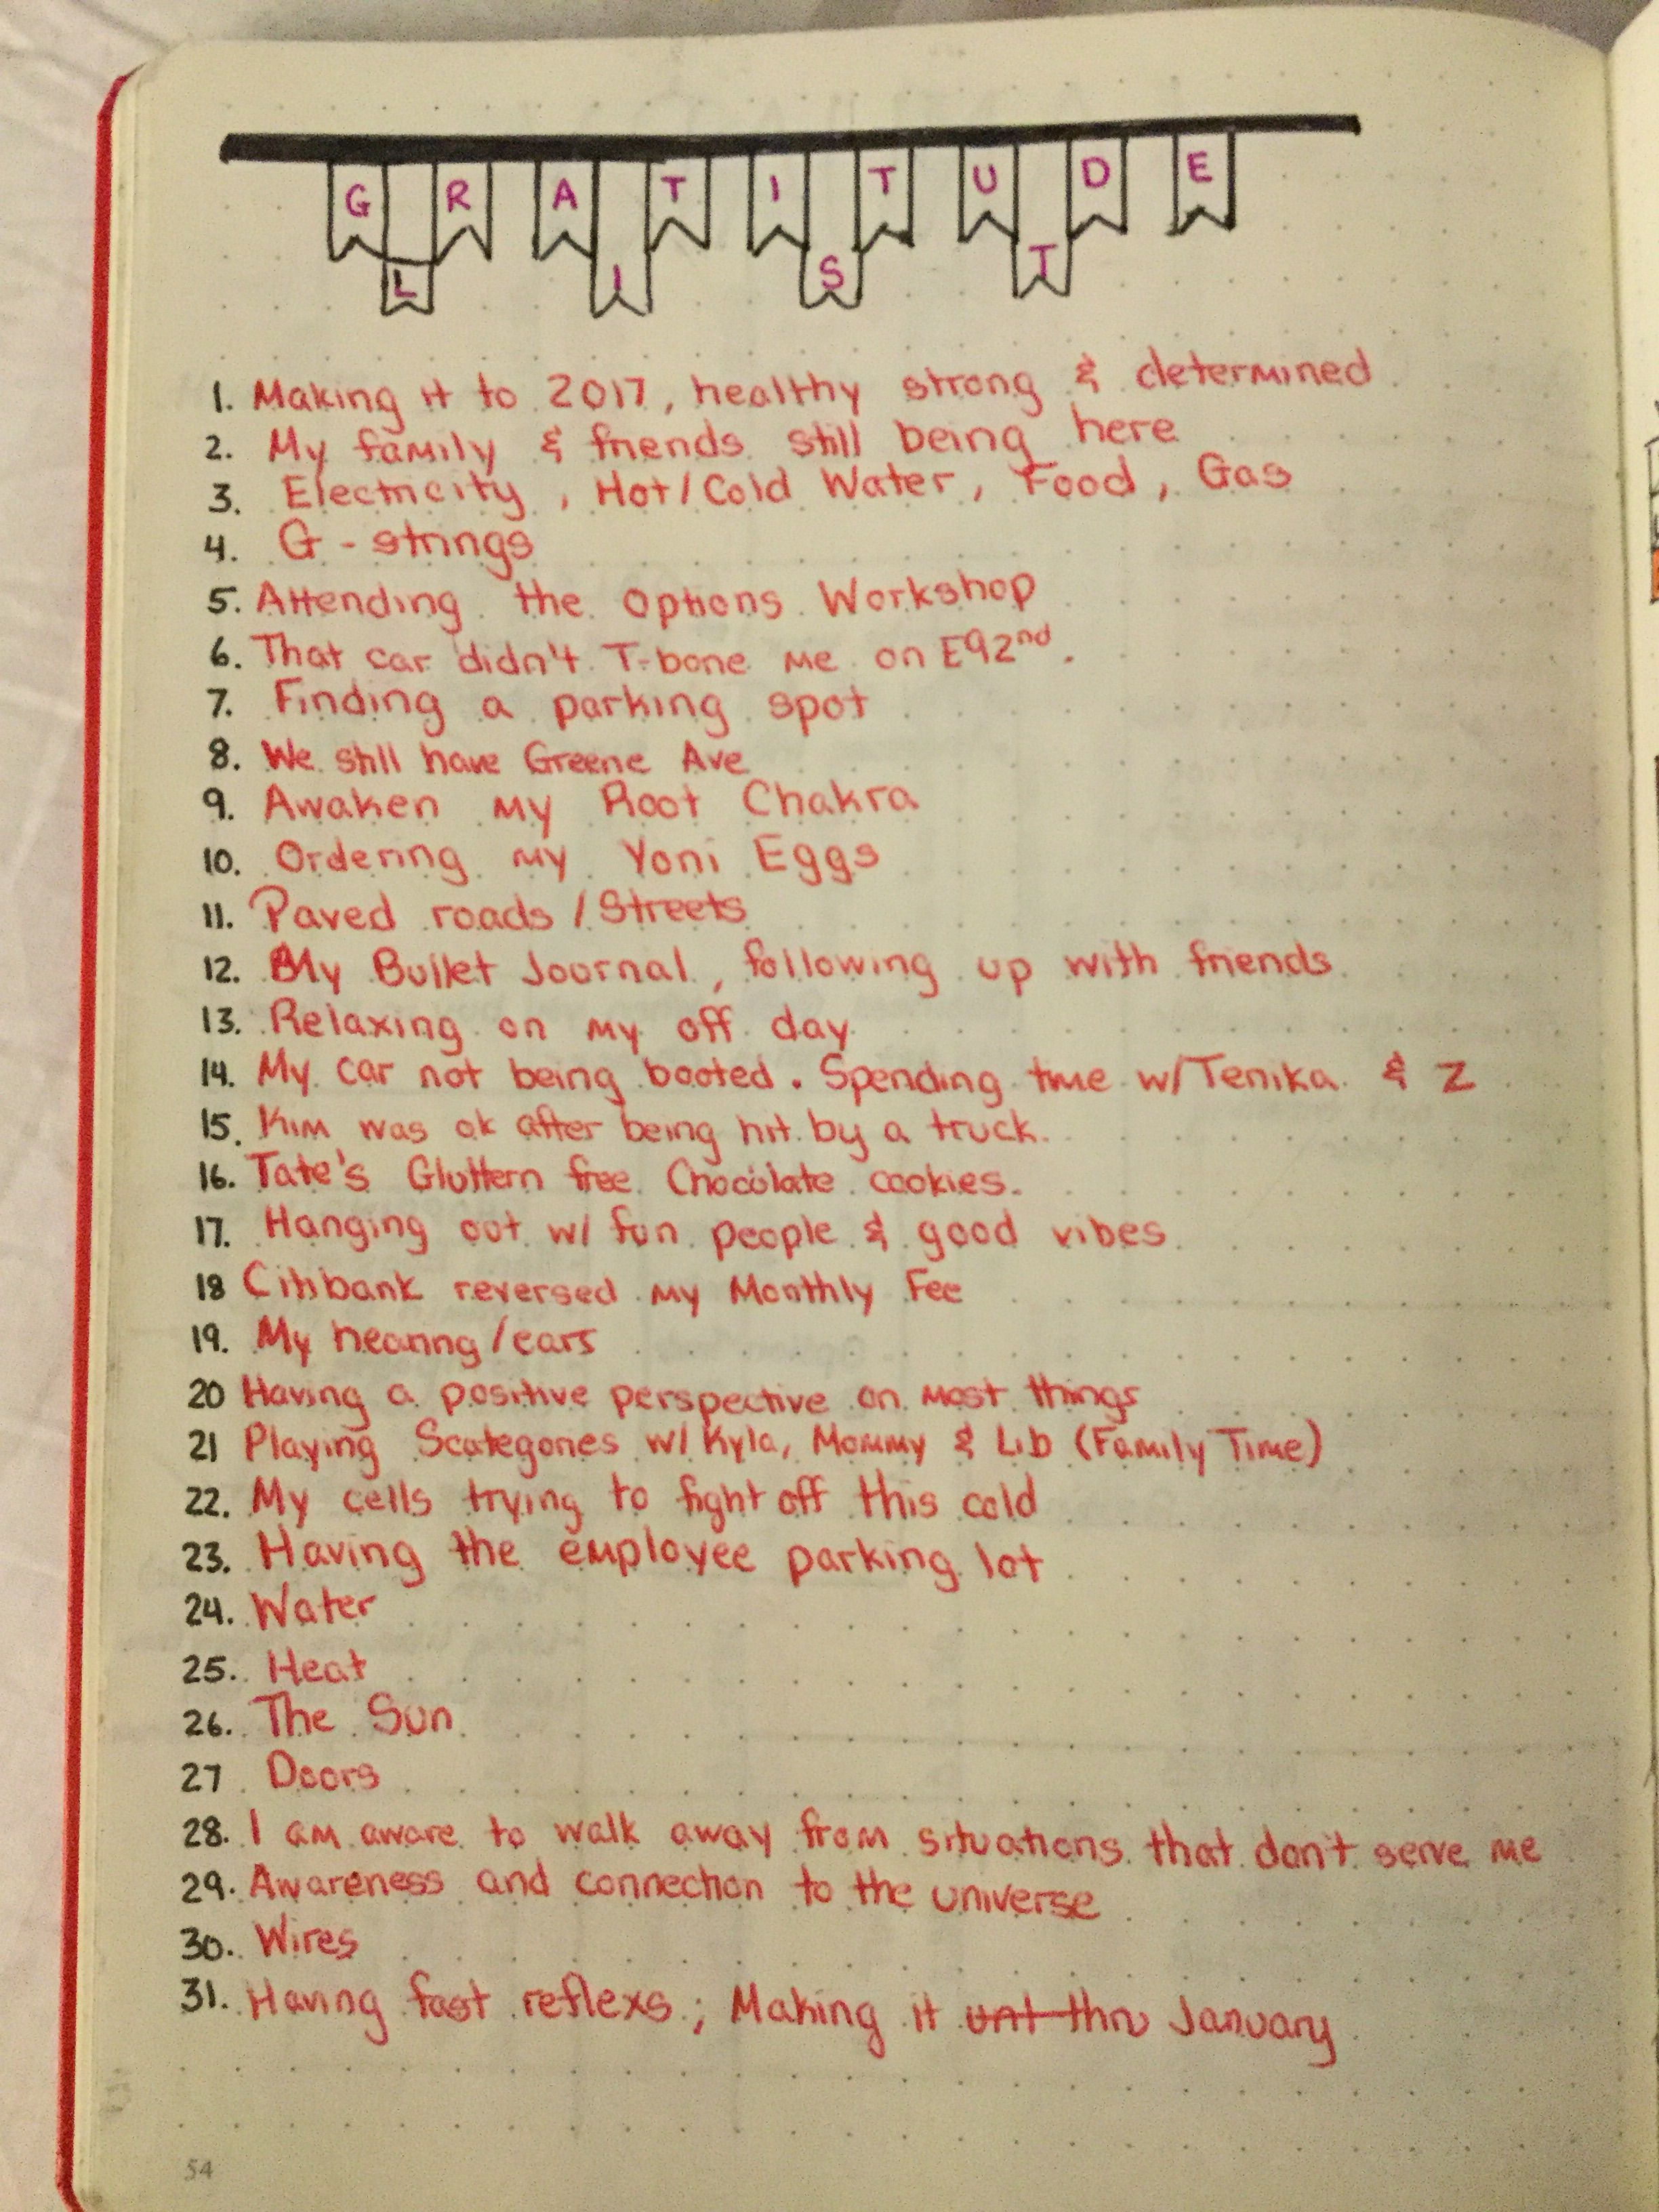 GRATITUDE
LIST
1. Making it to 2017, healthy strong & determined
2. My family & friends still being here
3. Electricity, Hot/Cold Water, Food, Gas
4. G-strings
5. Attending the Options Workshop
6. That car didn't T-bone me on E92nd.
7. Finding a parking spot
8. We still have Greene Ave
9. Awaken my Root Chakra
10. Ordering my Yoni Eggs
11. Paved roads / Streets
12. My Bullet Journal, following up with friends
13. Relaxing on my off day
14. My car not being booted. Spending time w/Tenika & Z
15. Kim was ok after being hit by a truck.
16. Tate's Gluttern free Chocolate cookies.
17. Hanging out w/ fun people & good vibes
18 Citibank reversed my Monthly Fee
19. My hearing/ears
20 Having a positive perspective on most things
21 Playing Scategories w/ Kyla, Mommy & Lib (Family Time)
22. My cells trying to fight off this cold
23. Having the employee parking lot
24. Water
25. Heat
26. The Sun
27. Doors
28. I am aware to walk away from situations that don't serve me
29. Awareness and connection to the universe
30. Wires
31. Having fast reflexs; Making it unt thru January
54